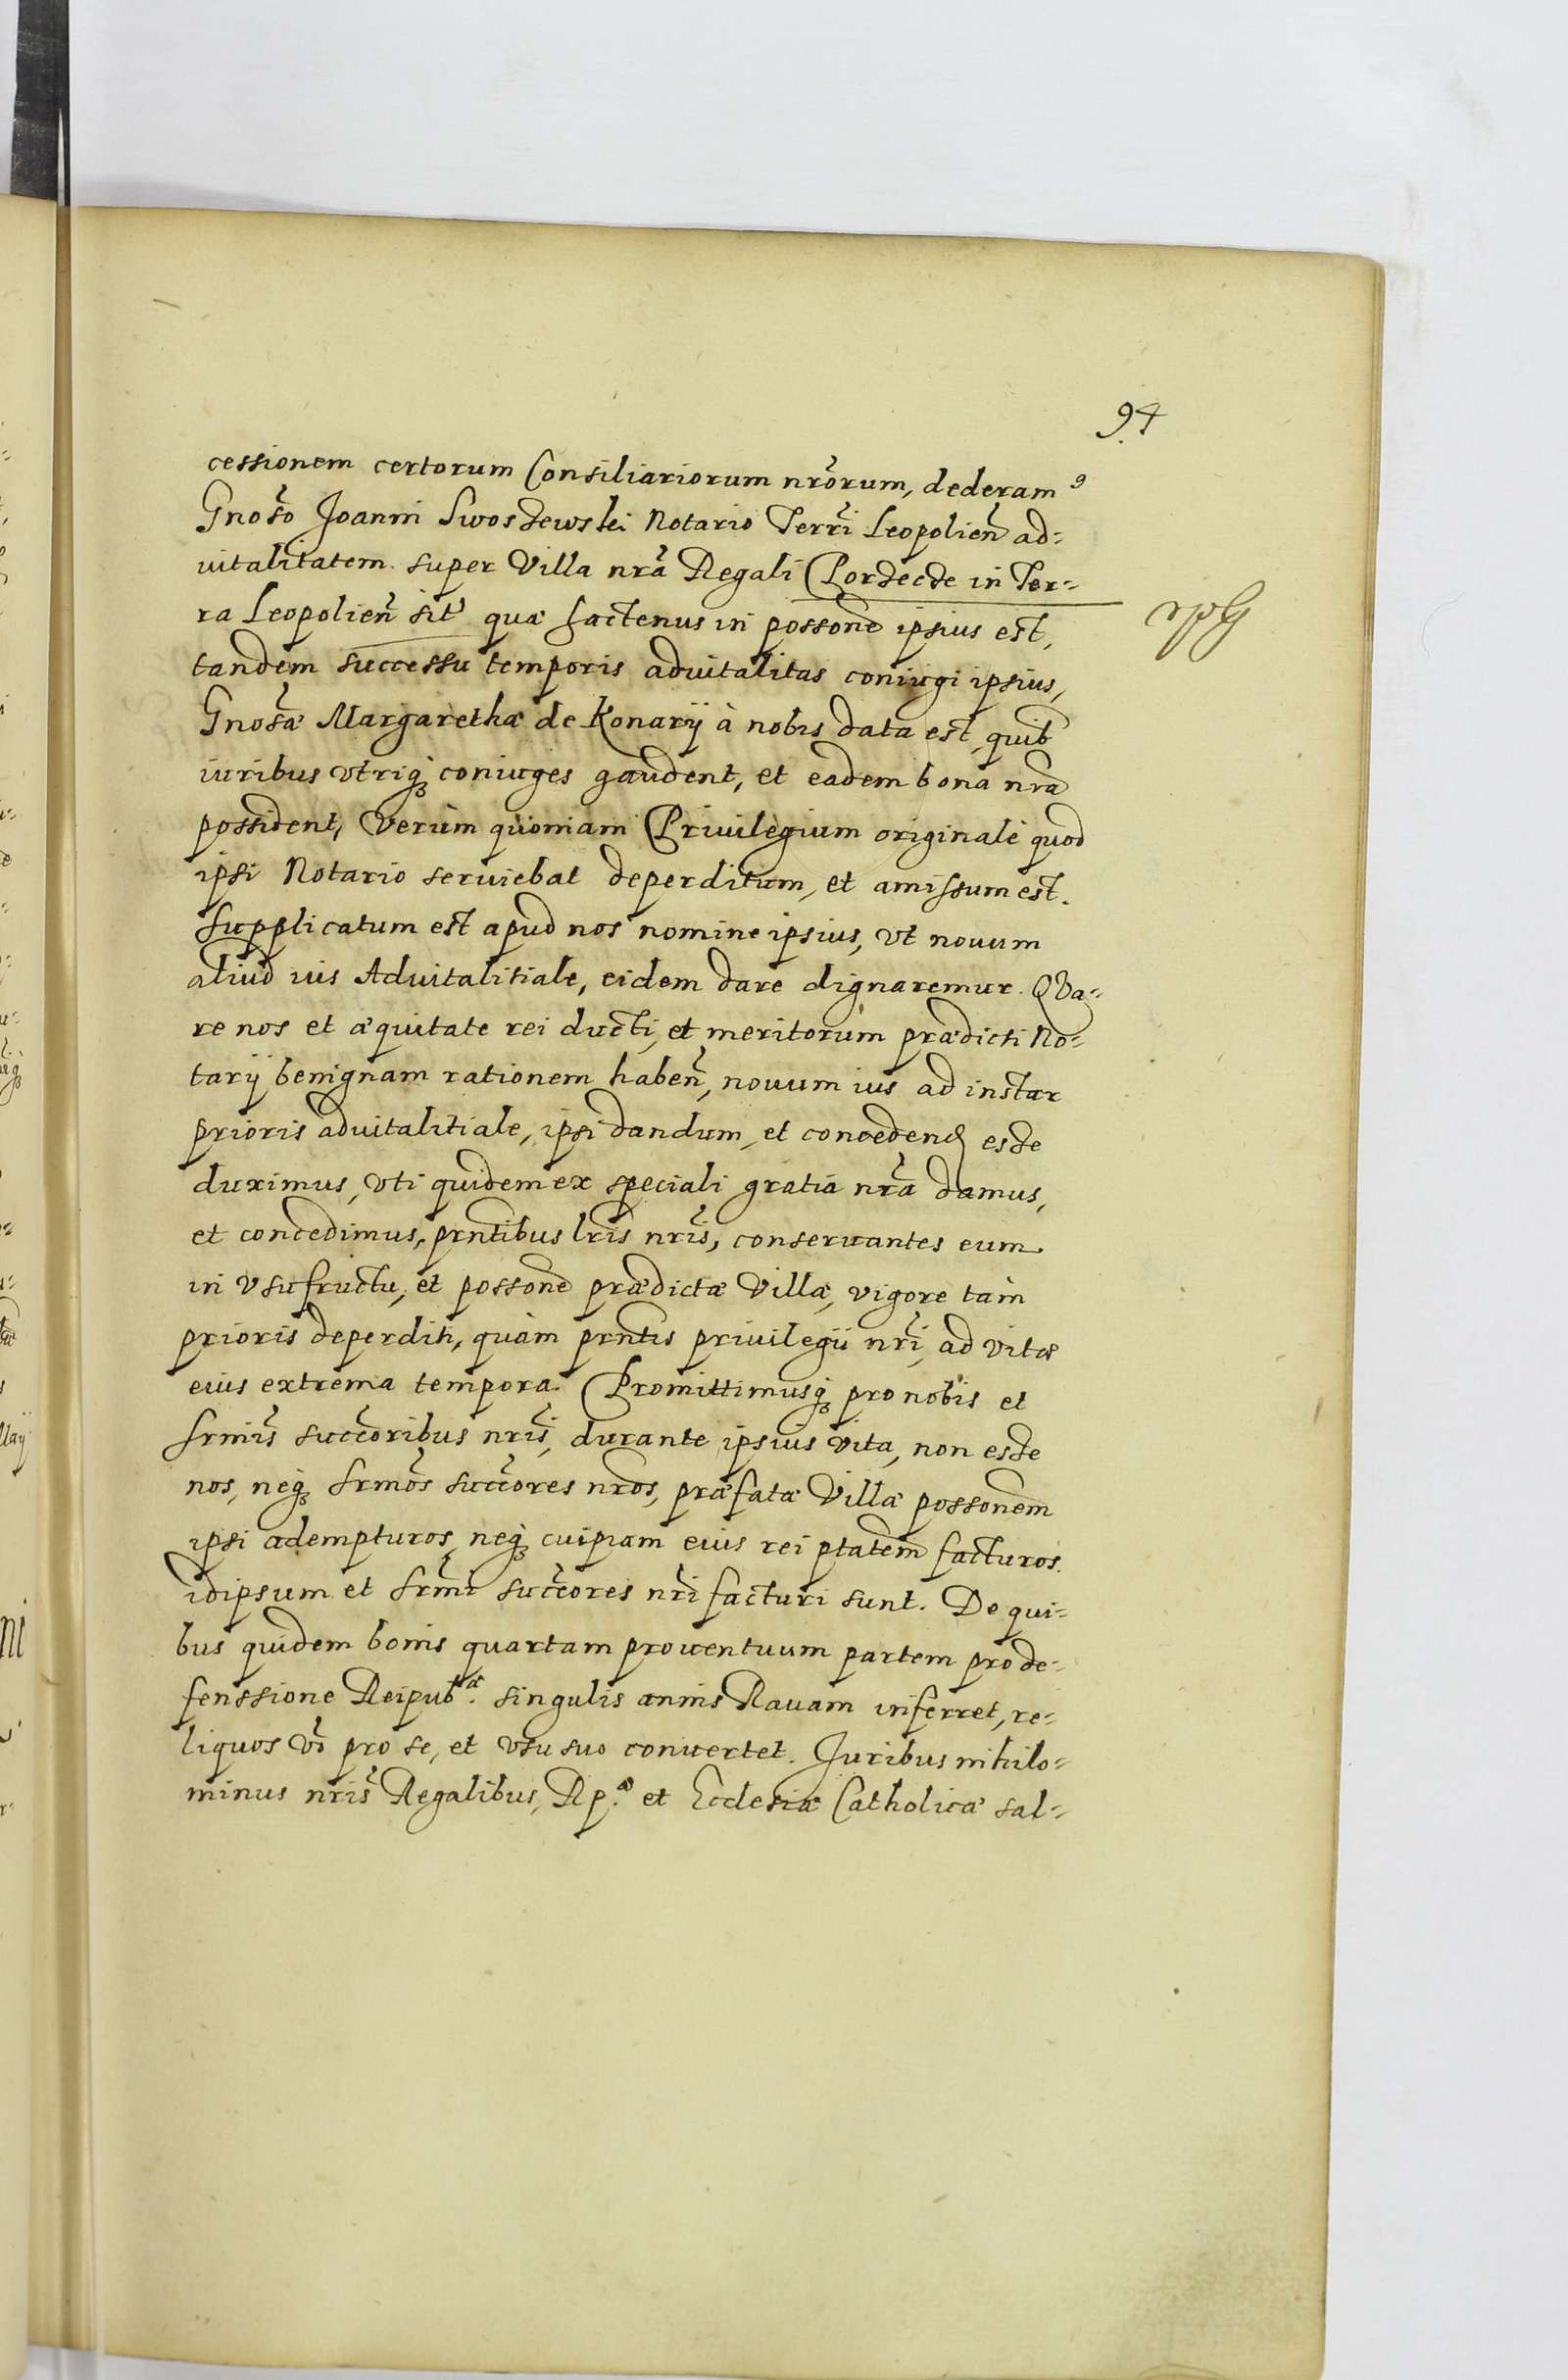 94
cessionem certorum Consiliariorum nrõrum, dederam9
Gnoso Joanni Swoszewski Notario Terri Leopolien ad=
uitalitatem super Villa nrã Regali Porzecze in Ter=
ra Leopolien sit quæ hactenus in possone ipsius est,
tandem successu temporis aduitalitas coniugi ipsius,
Gnosæ Margarethæ de Konary à nobis data est, quib
iuribus vtriq coniuges gaudent, et eadem bona nra
possident, Verùm quoniam Priuilegium originale quod
ipsi Notario seruiebat deperditum, et amissum est.
Supplicatum est apud nos nomine ipsius, vt nouum
aliud ius Aduitalitiale, eidem dare dignaremur. Qva=
re nos et æquitate rei ducti, et meritorum prædicti No=
tarij benignam rationem haben, nouum ius ad instar
prioris aduitalitiale, ipsi dandum, et concedend esse
duximus, vti quidem ex speciali gratia nrã damus,
et concedimus, prntibus lris nris, conseruantes eum
in vsufructu, et possone prædictæ Villæ, vigore tàm
prioris deperditi, quàm prntis priuilegii nri, ad vitæ
eius extrema tempora. Promittimusq pro nobis et
Srmis succoribus nris, durante ipsius vita, non esse
nos, neq Srmos succores nros, præfatæ Villæ possonem
ipsi adempturos, neq cuipiam eius rei ptatem facturos.
idipsum et Srmi succores nri facturi sunt. De qui=
bus quidem bonis quartam prouentuum partem pro de=
fenssione Reipub.cæ singulis annis Rauam inferret, re=
liquos vo pro se, et vsu suo conuertet. Juribus nihilo=
minus nris Regalibus, Rp.æ et Ecclesiæ Catholicæ sal=